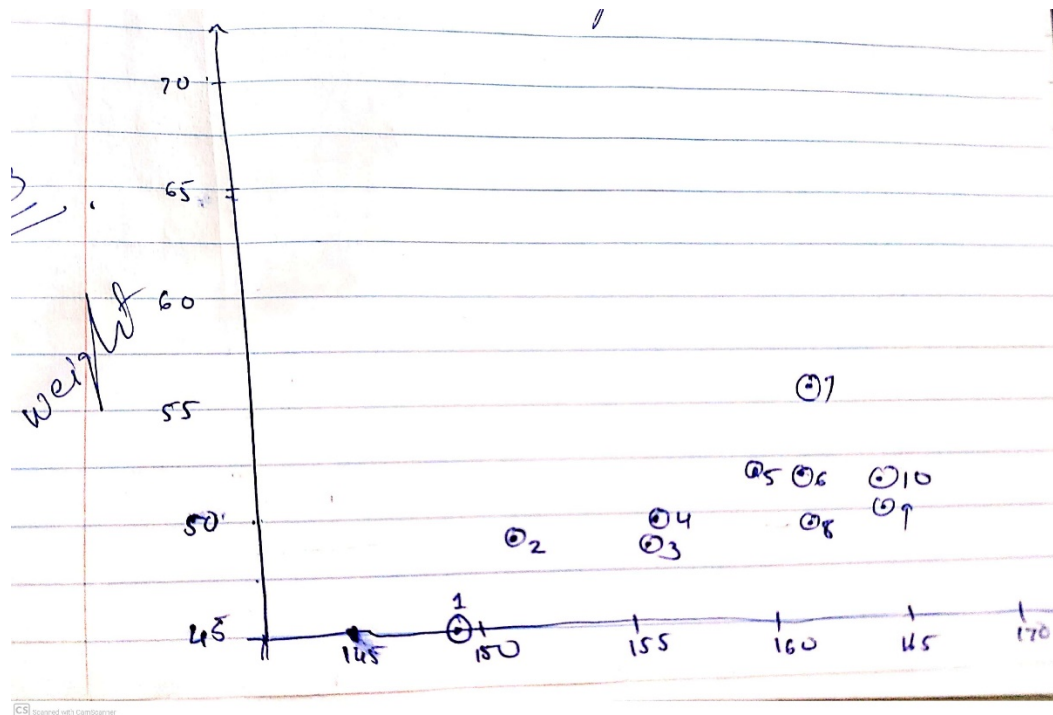 70
65
60
weight
55
7
5 6 10
50
8 9
4
2 3
1
45
145 150 155 160 165 170
CS Scanned with CamScanner